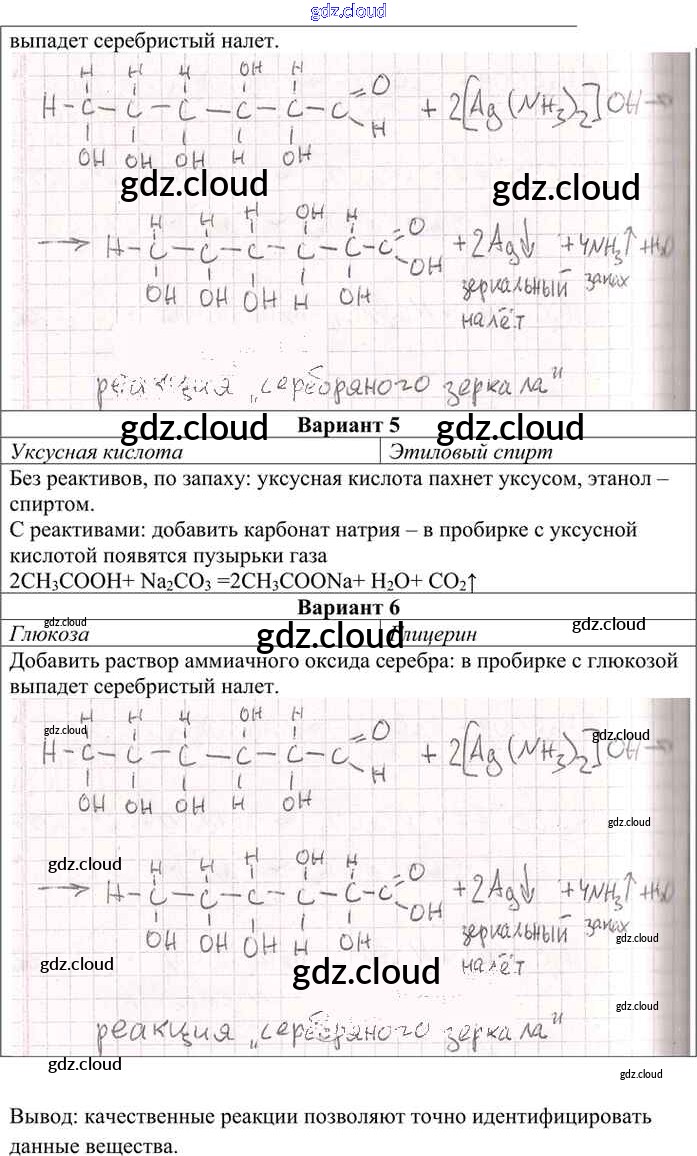 gdz.cloud
выпадет серебристый налет.
H H H OH H
H – C – C – C – C – C – C =O + 2[Ag(NH₃)₂]OH →
H
OH OH OH H OH
gdz.cloud gdz.cloud
H H H OH H
→ H – C – C – C – C – C – C =O + 2Ag↓ + 4NH₃↑ + H₂O
OH
OH OH OH H OH зеркальный запах
налёт
реакция „серебряного зеркала"
Вариант 5
gdz.cloud gdz.cloud
Уксусная кислота Этиловый спирт
Без реактивов, по запаху: уксусная кислота пахнет уксусом, этанол –
спиртом.
С реактивами: добавить карбонат натрия – в пробирке с уксусной
кислотой появятся пузырьки газа
2CH₃COOH+ Na₂CO₃ =2CH₃COONa+ H₂O+ CO₂↑
Вариант 6
gdz.cloud gdz.cloud gdz.cloud
Глюкоза Глицерин
Добавить раствор аммиачного оксида серебра: в пробирке с глюкозой
выпадет серебристый налет.
H H H OH H
gdz.cloud gdz.cloud
H – C – C – C – C – C – C =O + 2[Ag(NH₃)₂]OH →
H
OH OH OH H OH
gdz.cloud
gdz.cloud
H H H OH H
→ H – C – C – C – C – C – C =O + 2Ag↓ + 4NH₃↑ + H₂O
OH
OH OH OH H OH зеркальный запах
gdz.cloud
налёт
gdz.cloud gdz.cloud
gdz.cloud
реакция „серебряного зеркала"
gdz.cloud gdz.cloud
Вывод: качественные реакции позволяют точно идентифицировать
данные вещества.